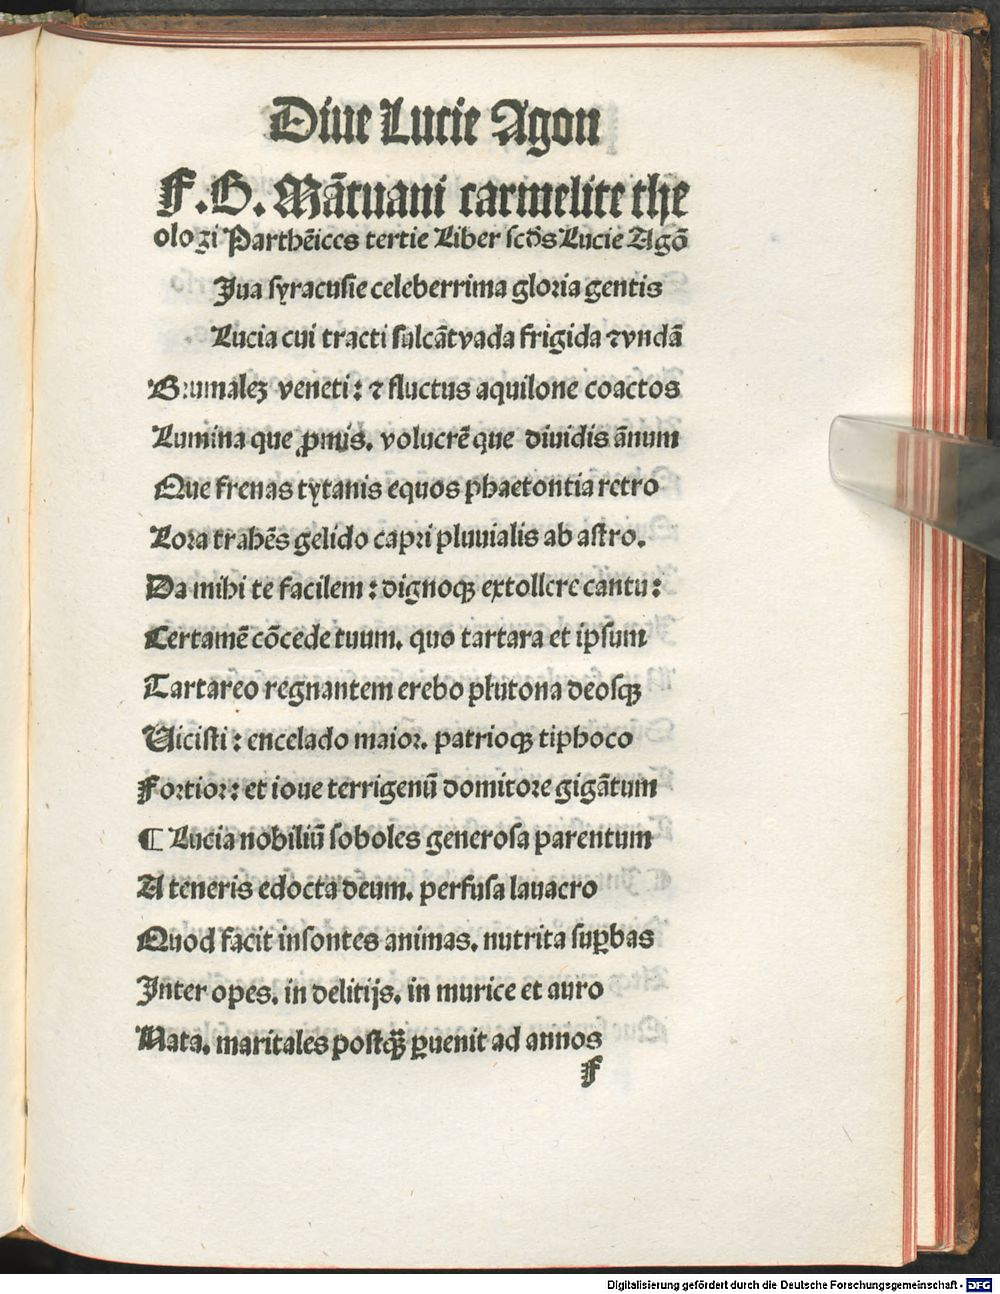 Diue Lucie Agon
F.B. Mãtuani carmelite the
ologi Parthẽices tertie Liber scđs Lucie Agõ
Iua syracusie celeberrima gloria gentis
Lucia cui tracti sulcãt vada frigida ⁊ vndã
Brumalez veneti: ⁊ fluctus aquilone coactos
Lumina que ꝓmis. volucrẽ que diuidis ãnum
Que frenas tytanis equos phaetontia retro
Lora trahẽs gelido capri pluuialis ab astro.
Da mihi te facilem: dignoqꝫ extollere cantu:
Certamẽ cõcede tuum. quo tartara et ipsum
Tartareo regnantem erebo plutona deosqꝫ
Uicisti: encelado maior. patrioqꝫ tiphoeo
Fortior: et ioue terrigenũ domitore gigãtum
¶ Lucia nobiliũ soboles generosa parentum
A teneris edocta deum. perfusa lauacro
Quod facit insontes animas. nutrita suꝑbas
Inter opes. in delitijs. in murice et auro
Nata. maritales postqꝫ̃ ꝑuenit ad annos
f
Digitalisierung gefördert durch die Deutsche Forschungsgemeinschaft - DFG